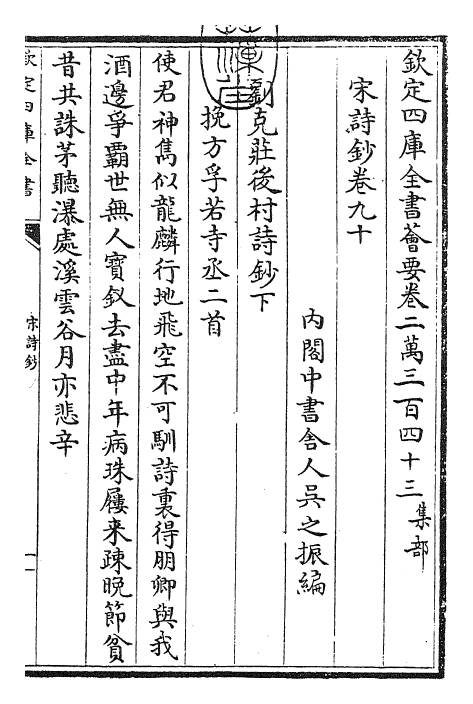 欽定四庫全書薈要卷二萬三百四十三集部
宋詩鈔卷九十
內閣中書舍人吳之振編
劉克莊後村詩鈔下
挽方孚若寺丞二首
使君神雋似龍麟行地飛空不可馴詩裏得朋卿與我
酒邊爭霸世無人寶釵去盡中年病珠屨来疎晚節貧
昔共誅茅聽瀑處溪雲谷月亦悲辛
欽定四庫全書
宋詩鈔
一